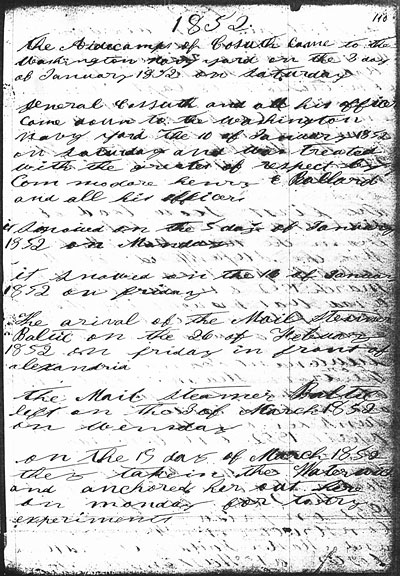 1852.
110
the Aidecamps of Cosuth Came to the
Washington navy yard on the 3 day
of January 1852 on Saturday
General Cossuth and all his officer
Come down to the Washington
Navy yard the 10 of January 1852
on Saturday and was treated
with the greates of respect by
Com modore henry E Ballard
and all his officers
it Snowed on the 5 day of January
1852 on Monday
it snowed on the 16 of Januar
1852 on friday
The arival of the Mail Steamer
Baltic on the 26 of Febuary
1852 on friday in front of
alexandria
the Mail Steamer Baltic
left on the 3 of March 1852
on Wensday
on the 15 day of March 1852
they take in the Water
and anchored her out
on monday for to try
experiments